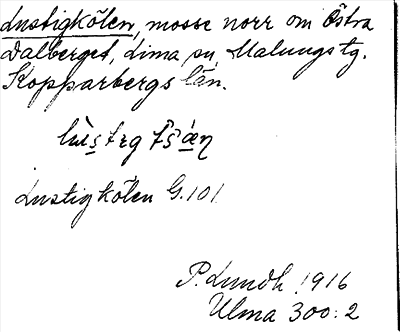 Lustigkölen, mosse norr om Östra
Dalberget, Lima sn, Malungs tg.
Kopparbergs län.
Lustigkölen G.101
P. Lundh 1916
Ulma 300:2